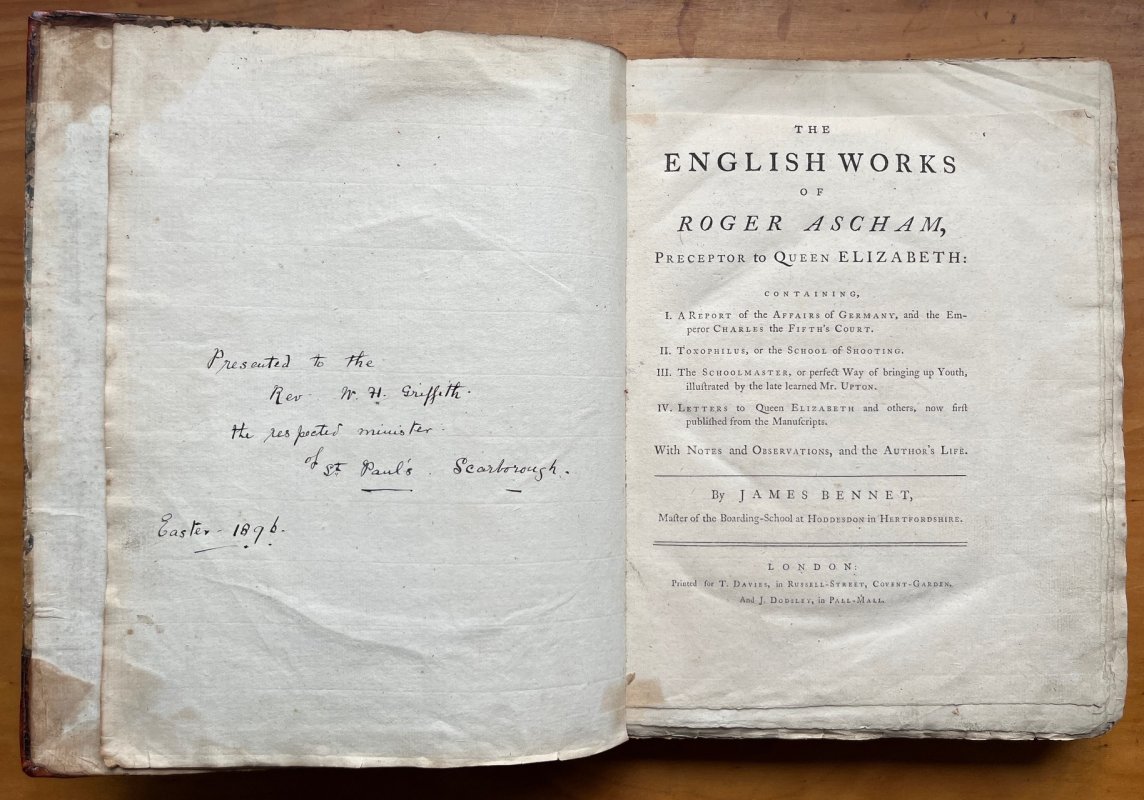 Presented to the
Rev. W. H. Griffith.
the respected minister.
of St. Paul's. Scarborough.
Easter - 1896.
THE
ENGLISH WORKS
OF
ROGER ASCHAM,
PRECEPTOR to QUEEN ELIZABETH:
CONTAINING,
I. A REPORT of the AFFAIRS of GERMANY, and the Em-
peror CHARLES the FIFTH's COURT.
II. TOXOPHILUS, or the SCHOOL of SHOOTING.
III. The SCHOOLMASTER, or perfect Way of bringing up Youth,
illuſtrated by the late learned Mr. UPTON.
IV. LETTERS to Queen ELIZABETH and others, now firſt
publiſhed from the Manuſcripts.
With NOTES and OBSERVATIONS, and the AUTHOR's LIFE.
By JAMES BENNET,
Maſter of the Boarding-School at HODDESDON in HERTFORDSHIRE.
LONDON:
Printed for T. DAVIES, in RUSSELL-STREET, COVENT-GARDEN.
And J. DODSLEY, in PALL-MALL.